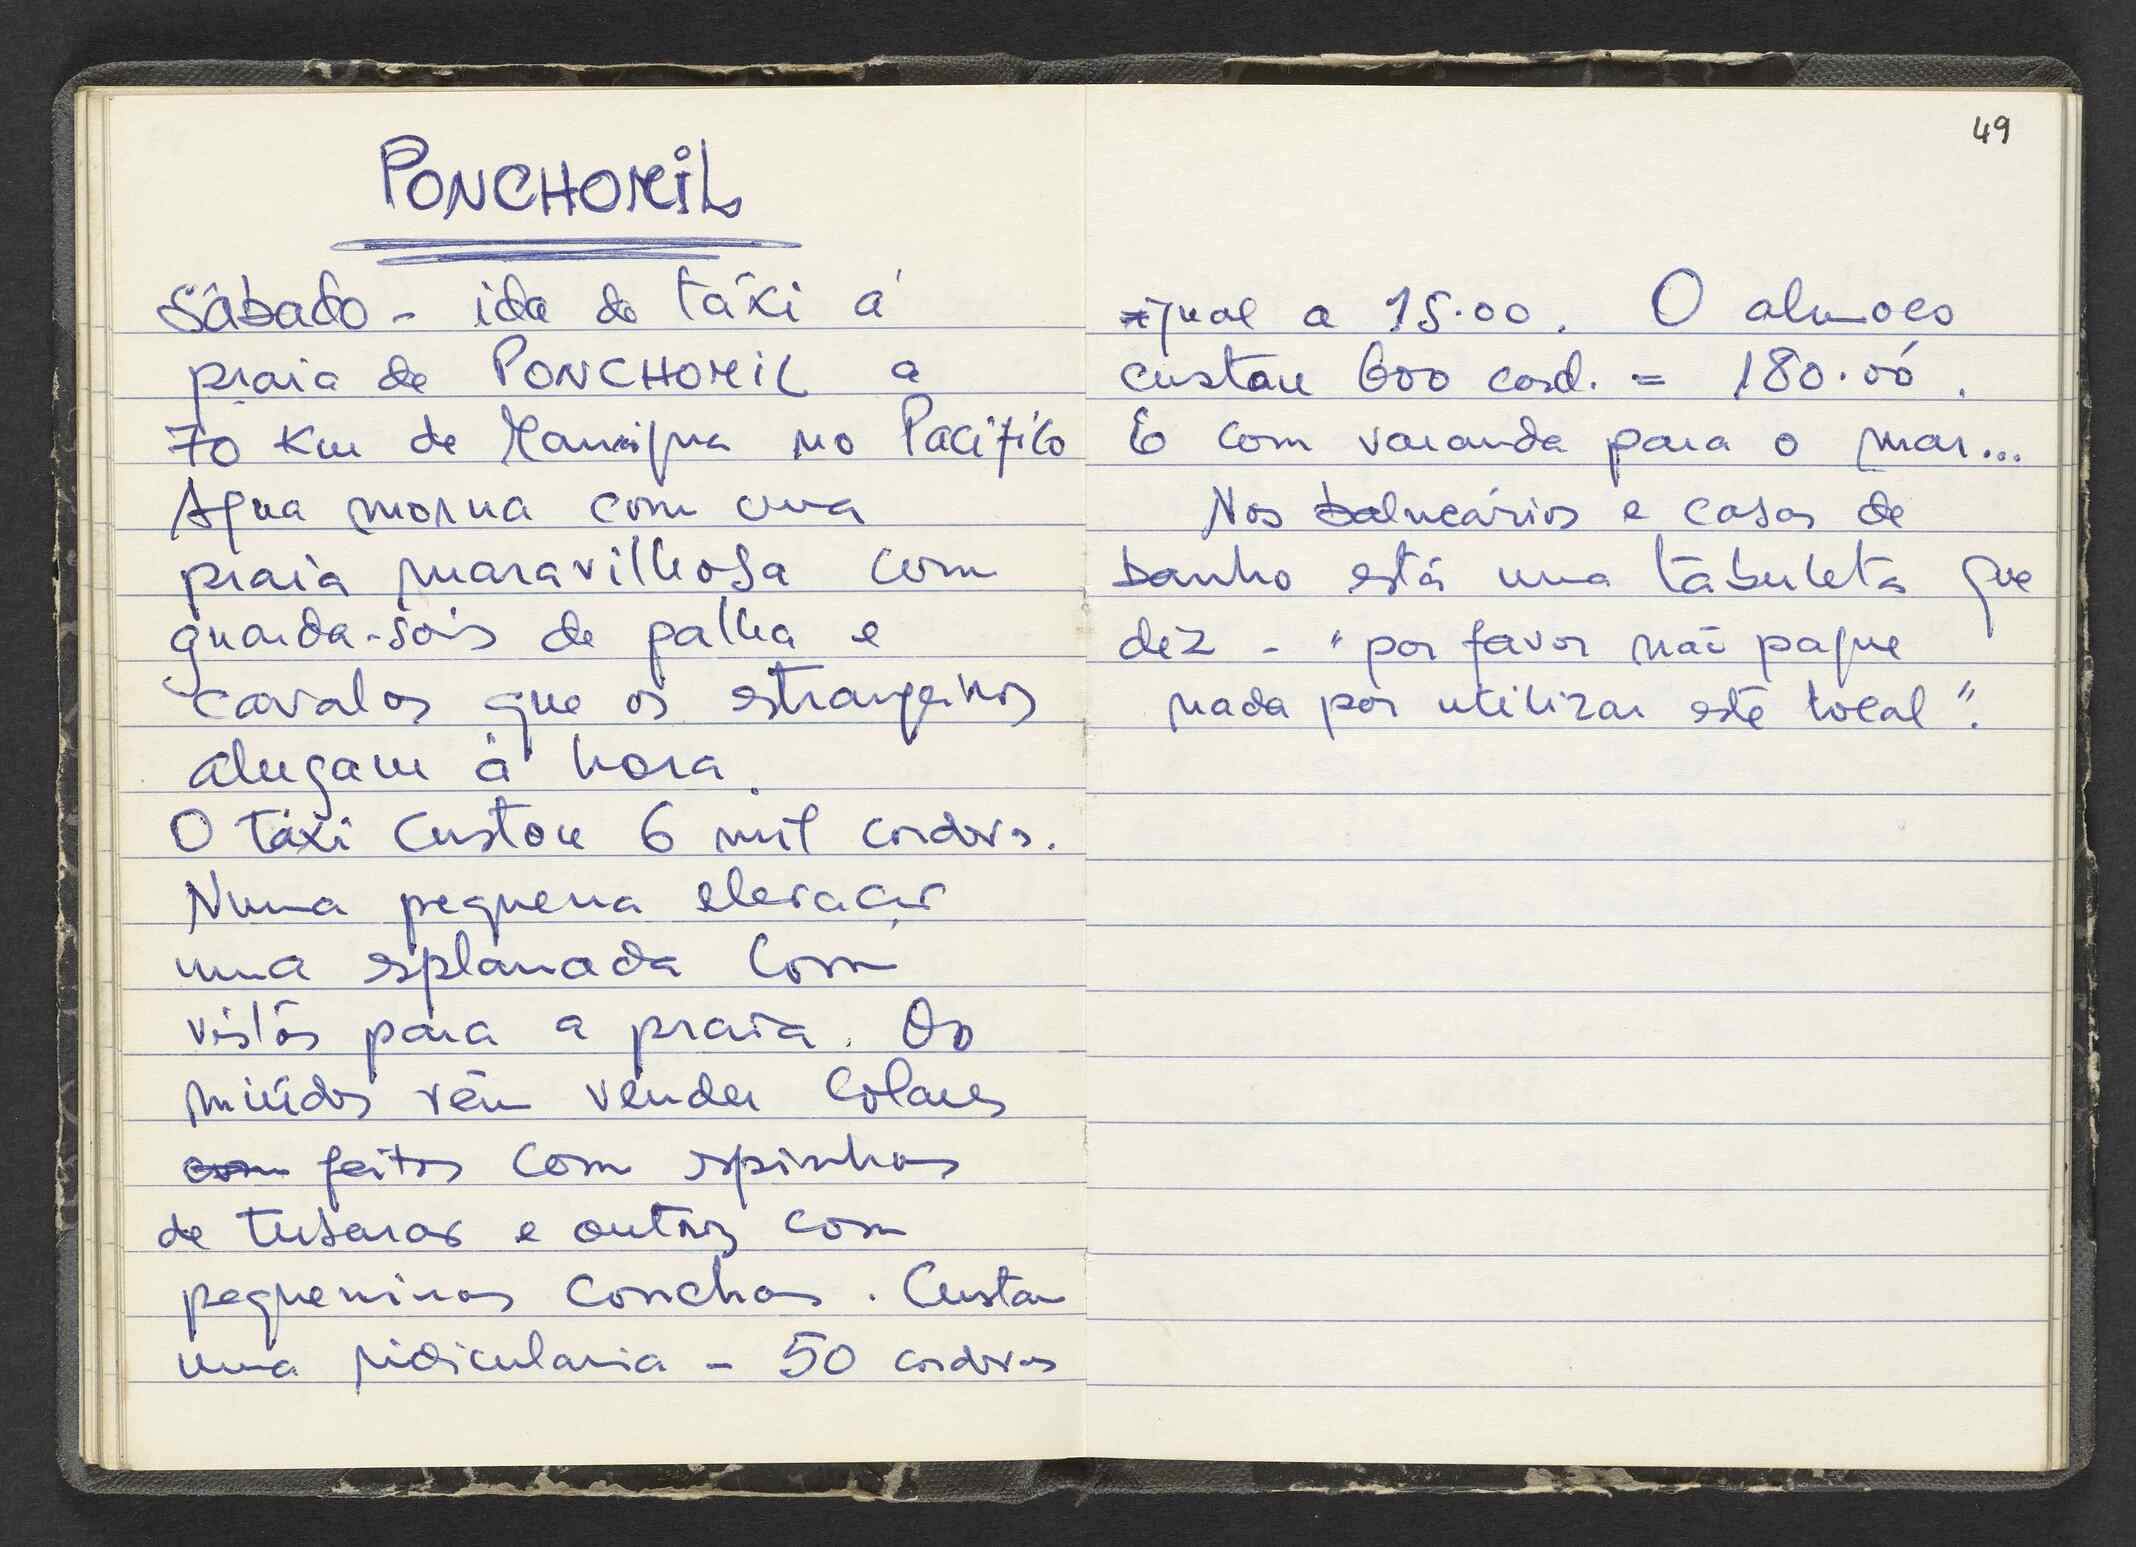 PONCHOMIL
Sábado - ida de táxi á
praia de PONCHOMIL a
70 Km de Managua no Pacífico
Agua morna com uma
praia maravilhosa com
guarda-sóis de palha e
cavalos que os estrangeiros
alugam à hora.
O táxi custou 6 mil cordovas.
Numa pequena elevação
uma esplanada com
vistas para a praia. Os
miúdos vêm vender colares
com feitos com espinhas
de tubarão e outros com
pequeninas conchas. Custam
uma ridicularia - 50 cordovas
49
igual a 15.00. O almoço
custou 600 cord. = 180.00.
E com varanda para o mar...
Nos balneários e casas de
banho está uma tabuleta que
diz - "por favor não pague
nada por utilizar este local".